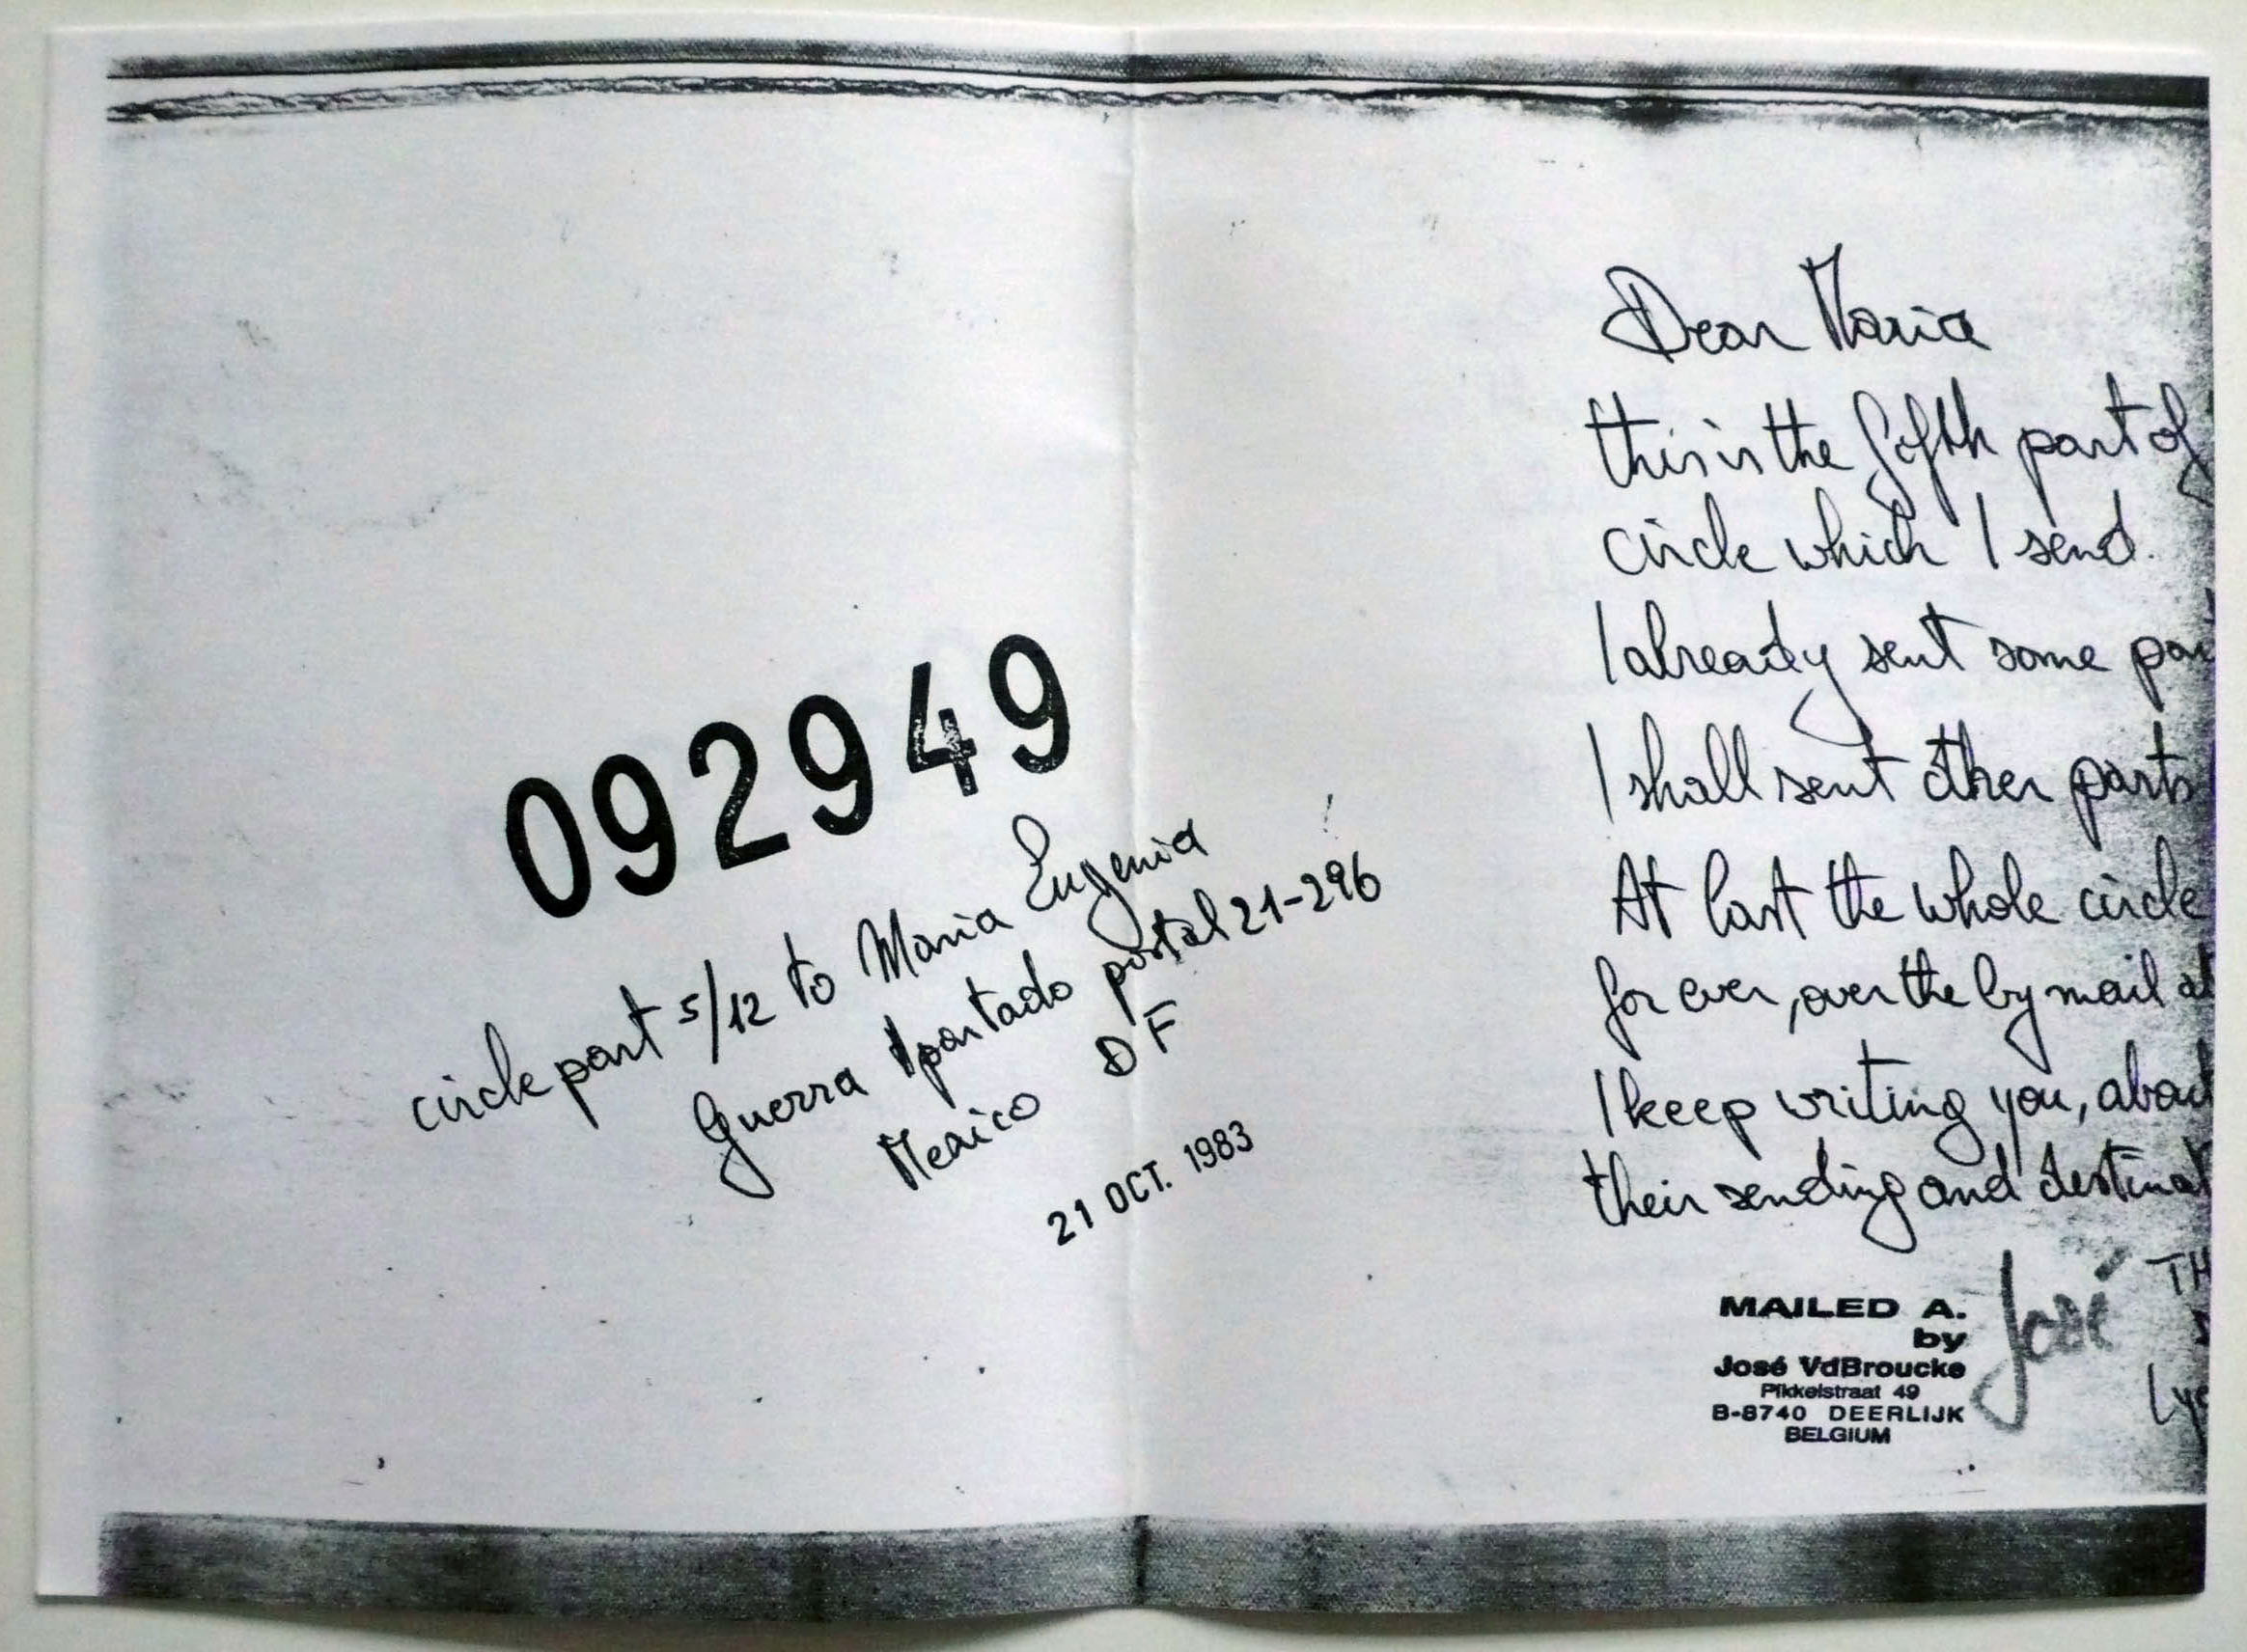 092949
circle part 5/12 to Maria Eugenia
Guerra Apartado postal 21-296
Mexico D F
21 OCT. 1983
Dear Maria
this is the fifth part of
circle which I send.
I already sent some
I shall sent other parts
At last the whole circle
for ever, over the by mail
I keep writing you,
their sending and
MAILED A.
by
José VdBroucke
Pikkelstraat 49
B-8740 DEERLIJK
BELGIUM
José
TH